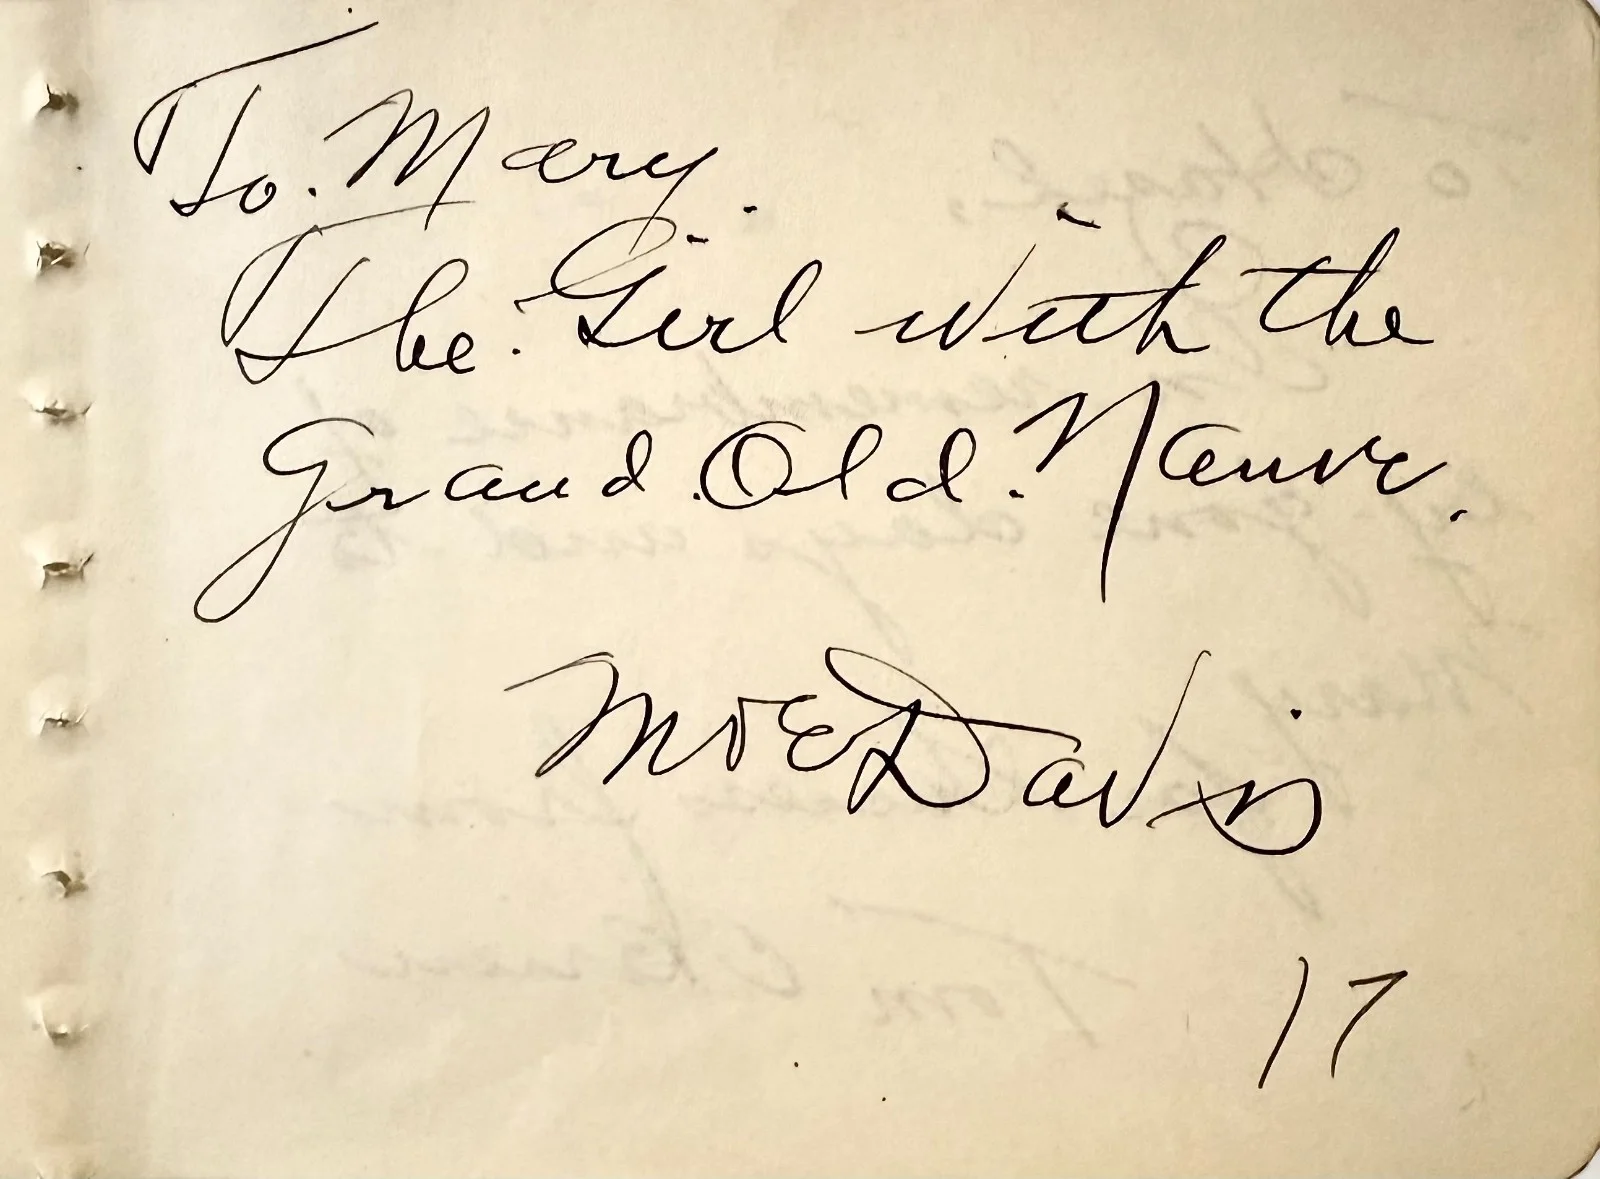 To. Mary.
The. Girl with the
Grand. Old. Name.
Moe Davis
17